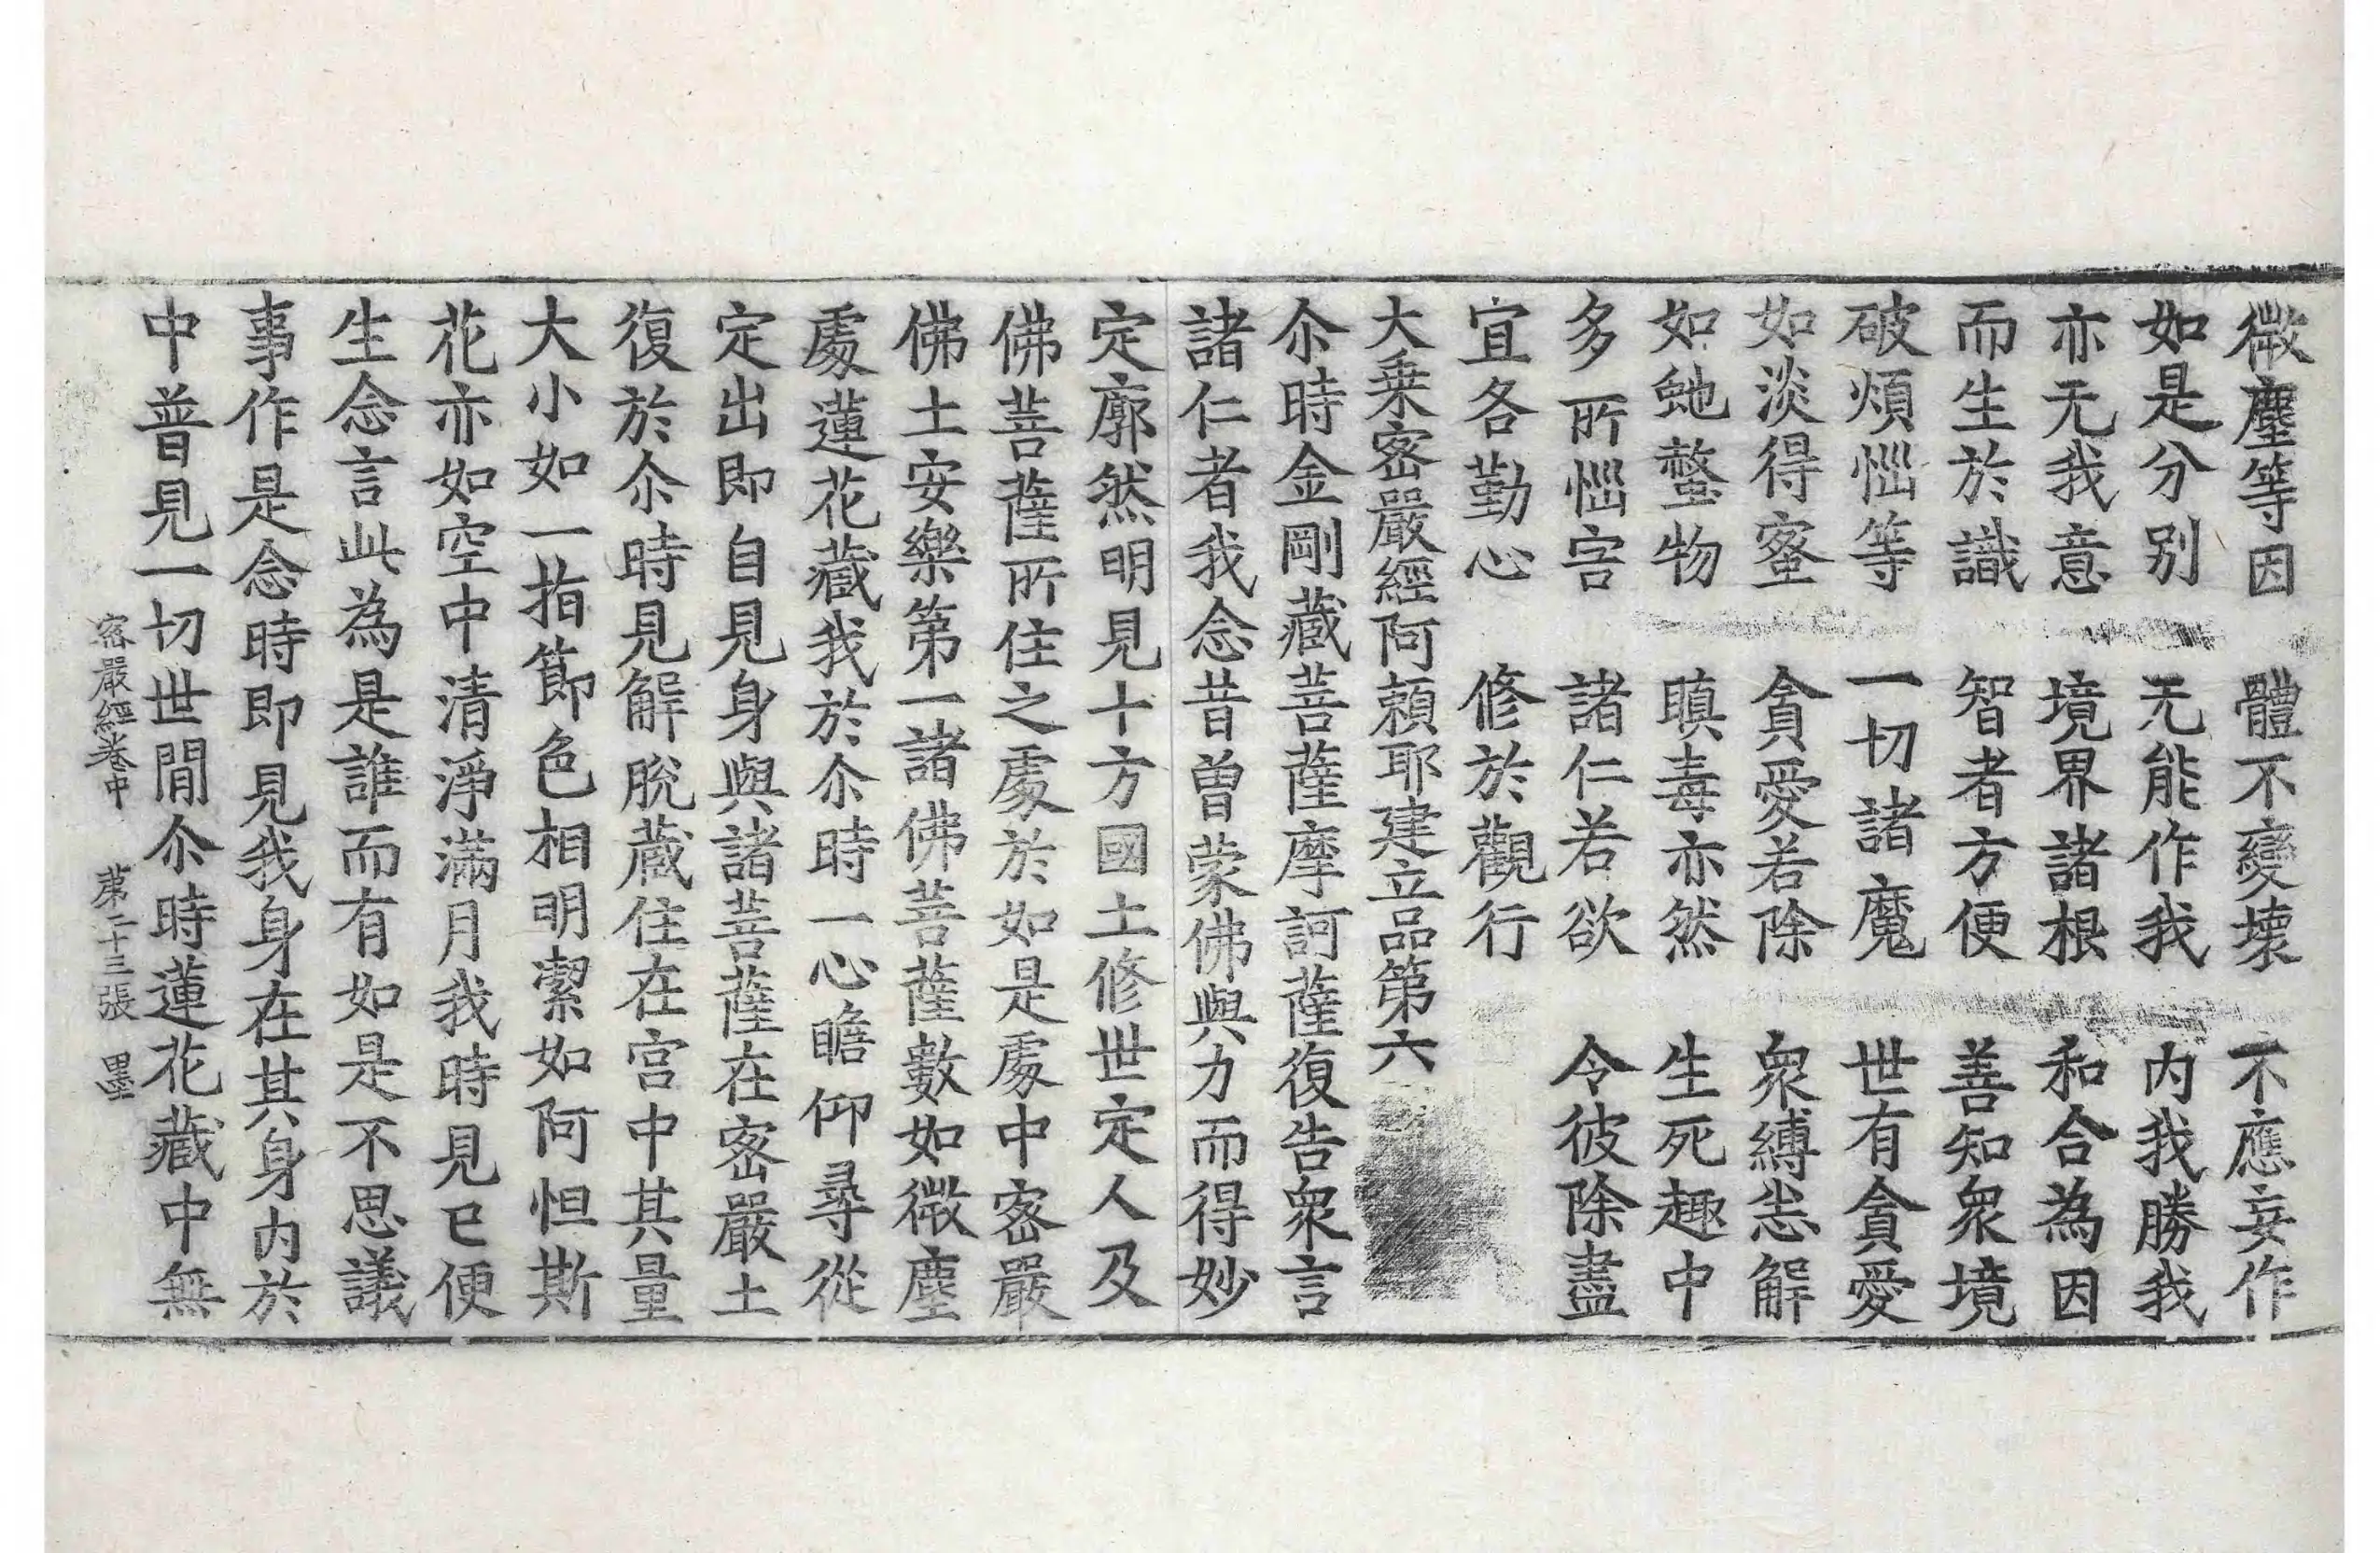 微塵等因　體不變壞　不應妄作
如是分别　无能作我　内我勝我
亦无我意　境界諸根　和合為因
而生於識　智者方便　善知衆境
破煩惱等　一切諸魔　世有貪愛
如淡得蜜　貪愛若除　衆縛悉解
如虵螫物　瞋毒亦然　生死趣中
多所惱害　諸仁若欲　令彼除盡
宜各勤心　修於觀行
大乗密嚴經阿頼耶建立品第六
尒時金剛藏菩薩摩訶薩復告衆言
諸仁者我念昔曽蒙佛與力而得妙
定廓然明見十方國土修世定人及
佛菩薩所住之處於如是處中密嚴
佛土安樂第一諸佛菩薩數如微塵
處蓮花藏我於尒時一心瞻仰尋從
定出即自見身與諸菩薩在密嚴土
復於尒時見解脫藏住在宫中其量
大小如一指節色相明潔如阿怛斯
花亦如空中清淨滿月我時見已便
生念言此為是誰而有如是不思議
事作是念時即見我身在其身内於
中普見一切世間尒時蓮花藏中無
密嚴經卷中　苐二十三張　墨